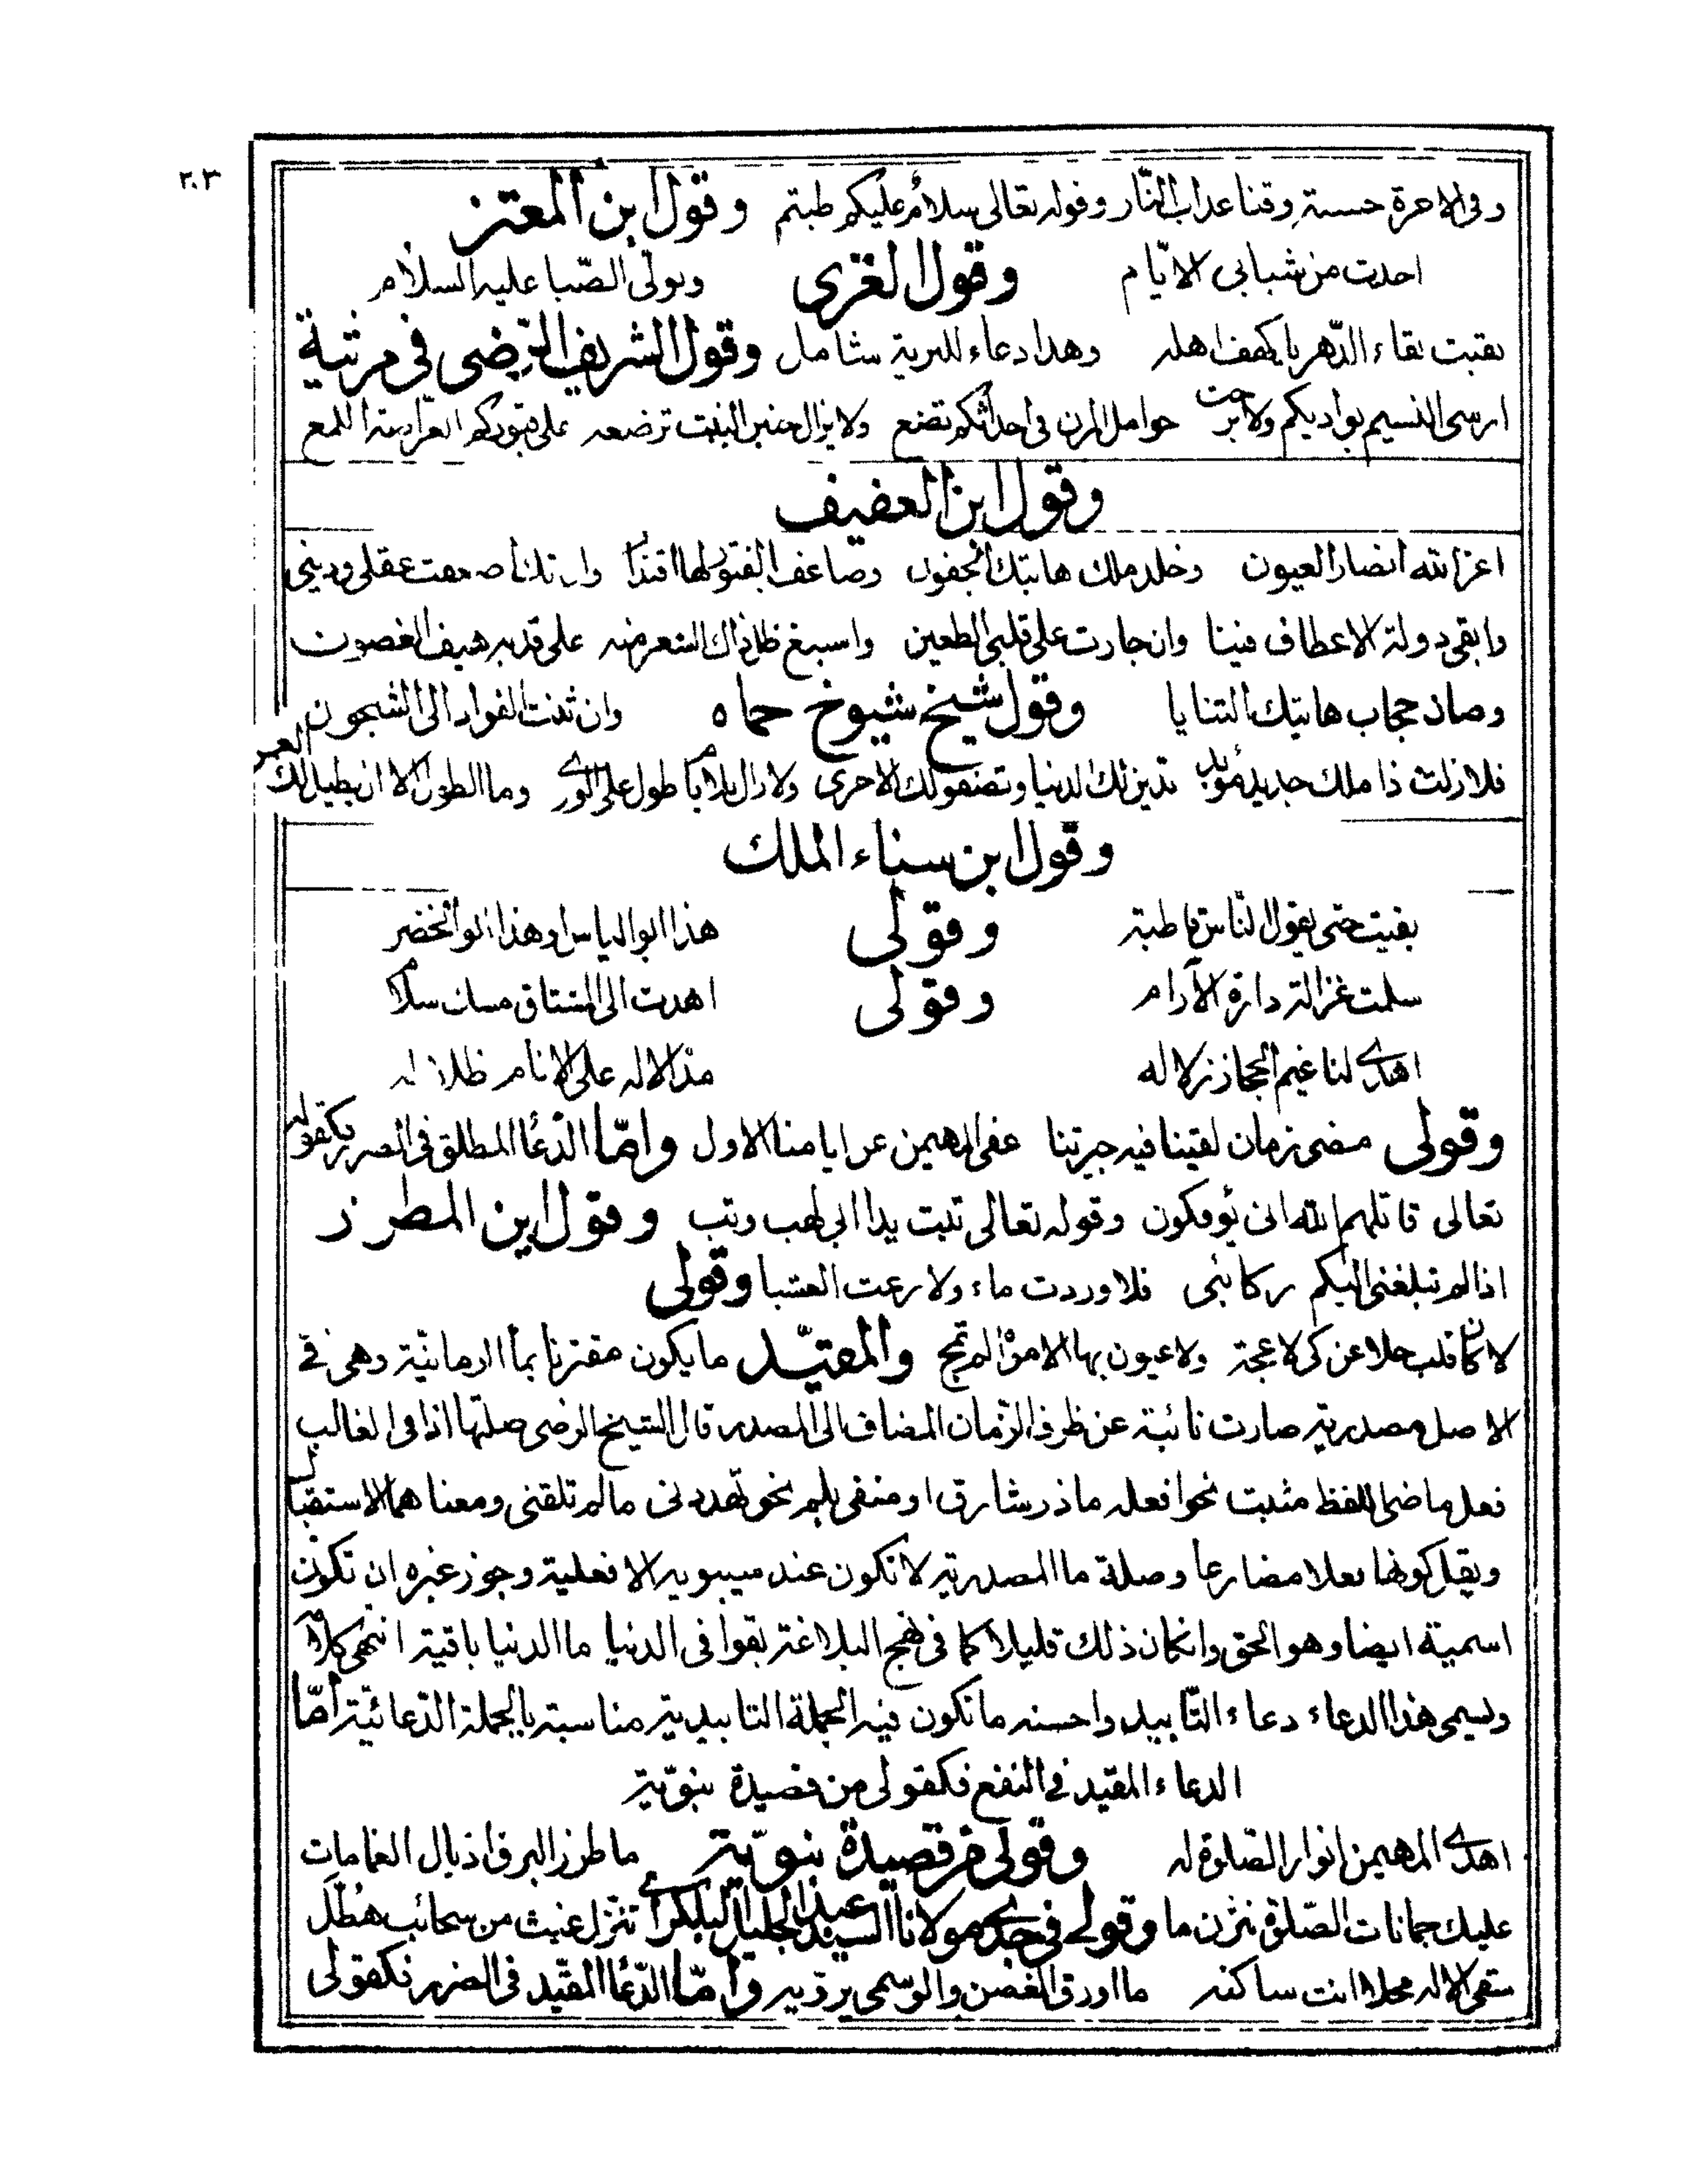 ٢٠٣
وفى الاخرة حسنة وقنا عذاب النار وقوله تعالى سلام عليكم طبتم وقول ابن المعتز
اخذت من شبابى الايام وقول الغزى وتولى الصبا عليه السلام
بقيت بقاء الدهر يا كهف اهله وهذا دعاء للبرية شامل وقول الشريف الرضى فى مرثية
ارسى النسيم بواديكم ولا برحت حوامل المزن فى اجداثكم تضع ولا يزال جنين النبت ترضعه على قبوركم العراصة اللمع
وقول ابن العفيف
اعز الله انصار العيون وخلد ملك هاتيك الجفون وضاعف بالفتور لها اقتدارا وان تك اضعفت عقلى ودينى
وابقى دولة الاعطاف فينا وان جارت على قلبى الطعين واسبغ ظل ذاك الشعر منه على قد به هيف الغصون
وصان حجاب هاتيك الثنايا وقول شيخ شيوخ حماه وان ثنت الفواد الى الشجون
فلا زلت ذا ملك جديد مؤبد تدين لك الدنيا وتصفو لك الاخرى ولا زال للايام طول على الورى وما الطول الا ان يطيل لك العمر
وقول ابن سناء الملك
بقيت حتى يقول الناس قاطبة وقولى هذا ابو الياس او هذا ابو الخضر
سلمت غزالة دارة الآرام وقولى اهدت الى المشتاق مسك سلام
اهدى لنا غيم الحجاز زلاله مد الاله على الانام ظلاله
وقولى مضى زمان لقينا فيه جيرتنا عفى المهيمن عن ايامنا الاول واما الدعا المطلق فى الضرر فكقوله
تعالى قاتلهم الله انى يؤفكون وقوله تعالى تبت يدا ابى لهب وتب وقول ابن المطرز
اذا لم تبلغنى اليكم ركائبى فلا وردت ماء ولا رعت العشبا وقولى
لا كان قلب خلا عن كى لاعجة ولا عيون بها الامواه لم تمج والمقيد ما يكون مقترنا بما الزمانية وهى فى
الاصل مصدرية صارت نائبة عن ظرف الزمان المضاف الى المصدر قال الشيخ الرضى صلتها اذا فى الغالب
فعل ماضى اللفظ مثبت نحو افعله ما ذر شارق او منفى بلم نحو تهددنى ما لم تلقنى ومعناهما الاستقبال
ويقل كونها فعلا مضارعا وصلة ما المصدرية لا تكون عند سيبويه الا فعلية وجوز غيره ان تكون
اسمية ايضا وهو الحق وان كان ذلك قليلا كما فى نهج البلاغة بقوا فى الدنيا ما الدنيا باقية انتهى كلامه
ويسمى هذا الدعاء دعاء التابيد واحسنه ما تكون فيه الجملة التابيدية مناسبة بالجملة الدعائية اما
الدعاء المقيد فى النفع فكقولى من قصيدة نبوية
اهدى المهيمن انوار الصلوة له وقولى من قصيدة نبوية ما طرز البرق اذيال الغمامات
عليك جمانات الصلوة نثرن ما وقولى فى جدى مولانا السيد عبد الجليل البلكرامى تنزل غيث من سحائب هطل
سقى الاله محلا انت ساكنه ما اورق الغصن والوسمى يرويه واما الدعا المقيد فى الضرر فكقولى